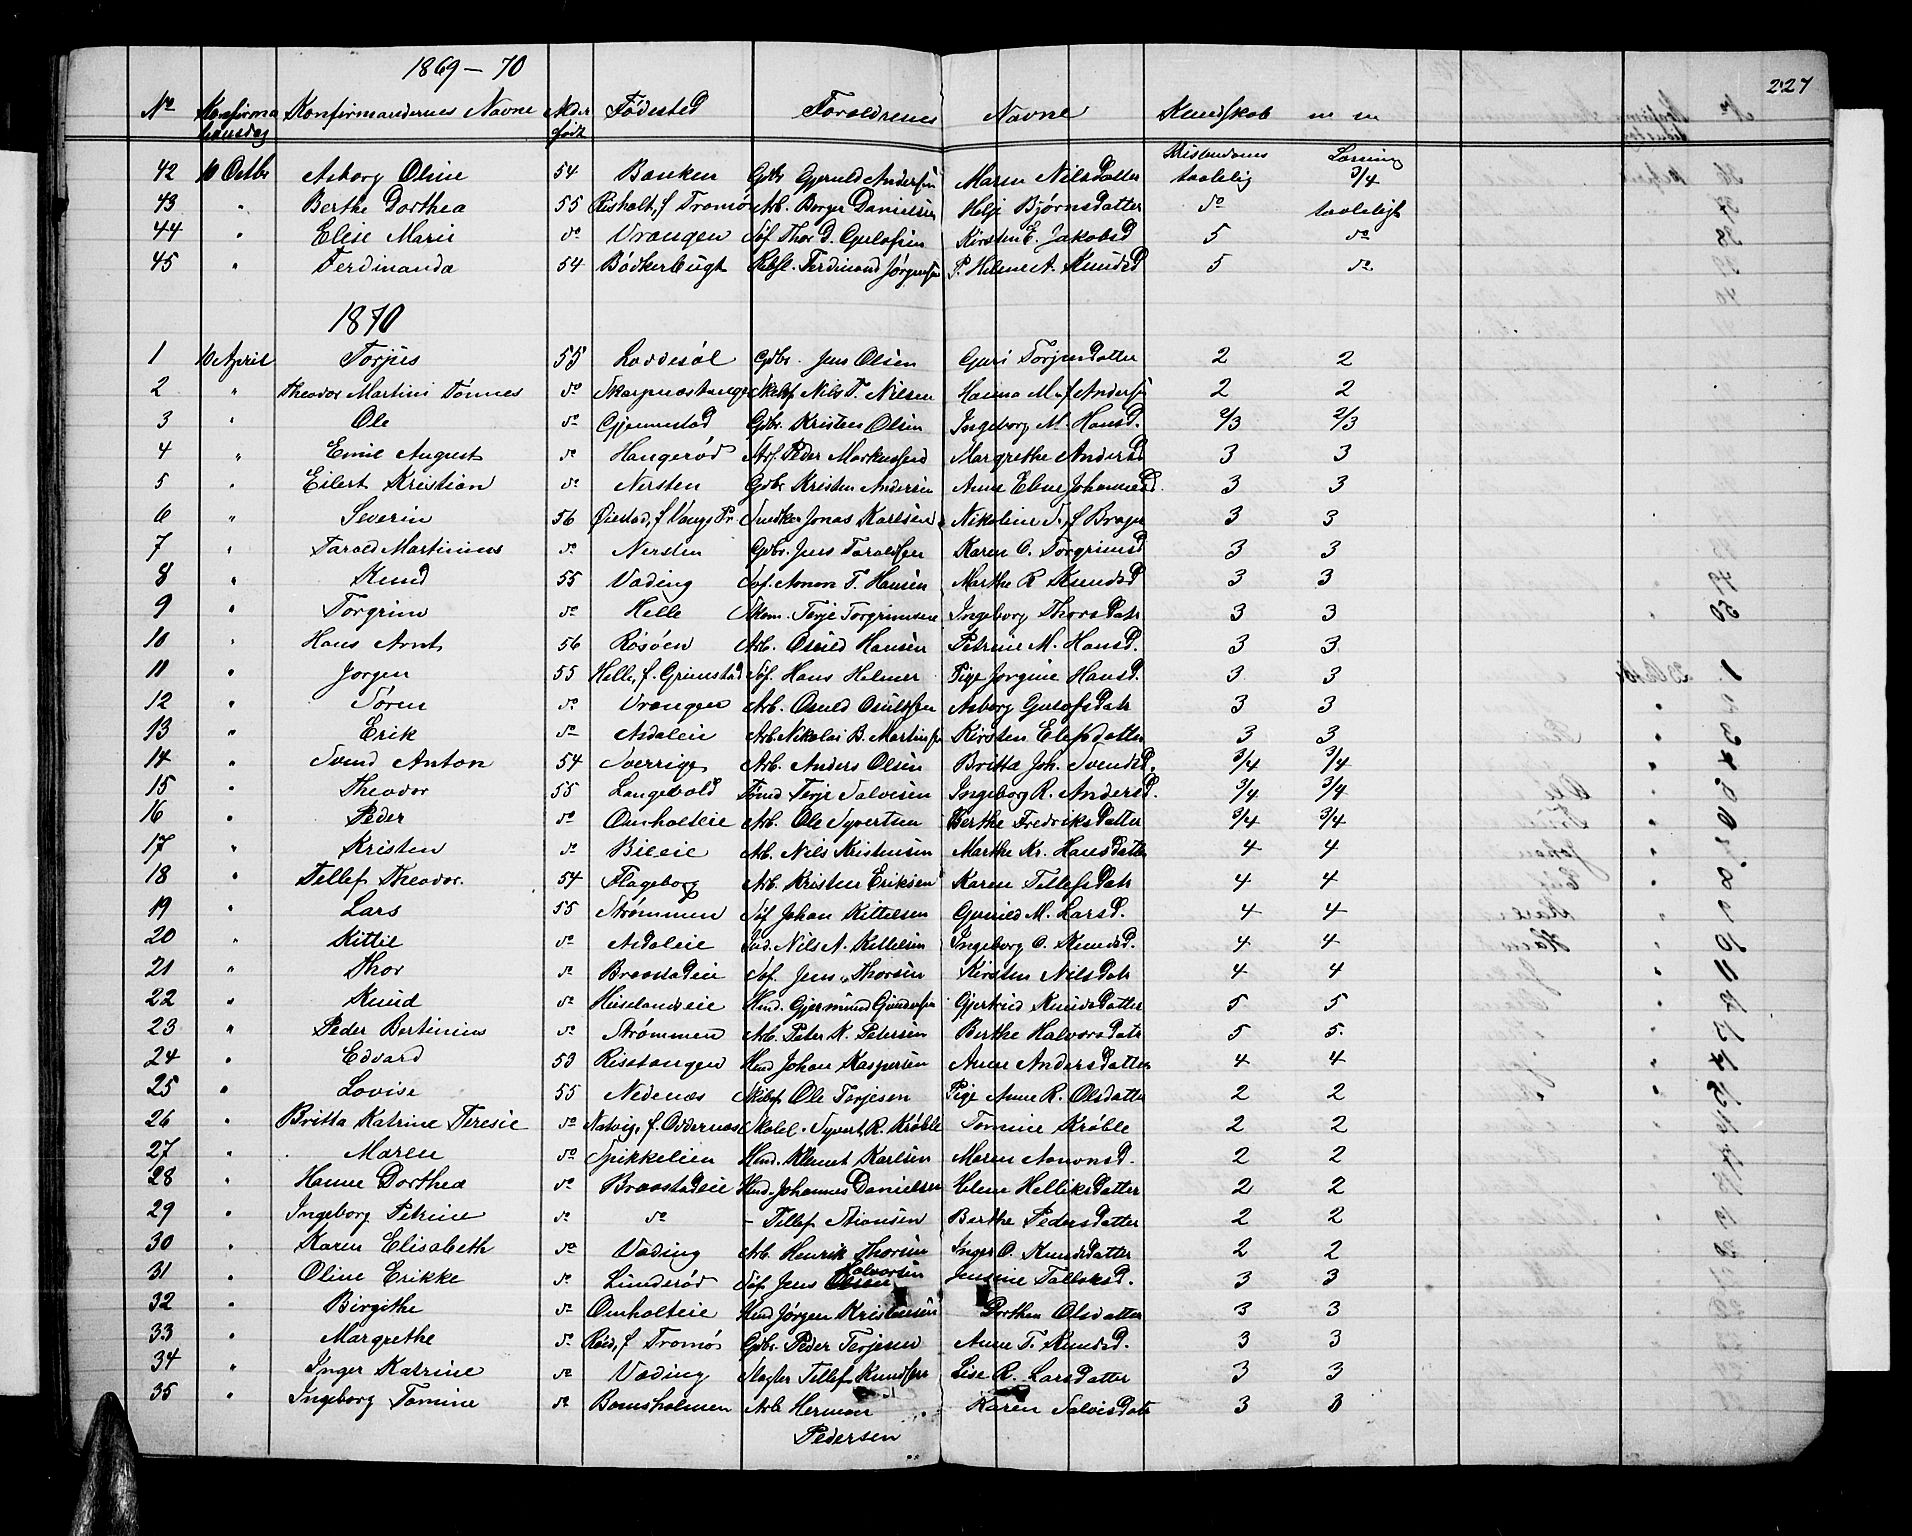 1869 – 70
227
No Konfirmationsdag Konfirmandernes Navne Alder født Fødested Forældrenes Navne Kundskab
Kristendoms Læsning
42 10 Octbr Asborg Oline 54 Banken Gdbr Gjeruld Andersen Maren Nilsdatter taalelig 3/4
43 " Berthe Dorthea 55 Risholt, f Tromø Arb. Berge Danielsen Helje Bjørnsdatter do taaleligt
44 " Elise Marie do Vrangen Søf Thor D. Gulofsen Kirsten E. JakobsD 5 do
45 " Ferdinanda 54 Bødkerbugt Ferdinand Jørgensen P. Helene A. KnudsD 5 do
1870
1 10 April Torjus 55 Løddesøl Gdbr. Jens Olsen Guri TorjusDatter 2 2
2 " Theodor Martin Tønnes do Skarpnæstangen Skibf Nils T. Nilsen Hanna M. f Andersen 2 2
3 " Ole do Gjennestad Gdbr. Kristen Olsen Ingeborg M. HansD. 2/3 2/3
4 " Emil August do Haugerød Peder Markussen Margrethe AndersD 3 3
5 " Eilert Kristian do Nersten Gdbr Kristen Andersen Anne Eline JohannesD. 3 3
6 " Severin 56 Øiestad, f Vangs Pr. Snedker Jonas Karlsen Nikoline T. f Brager 3 3
7 " Tarald Martinius do Nersten Gdbr. Jens Taraldsen Karen O. TorgrimsD 3 3
8 " Knud 55 Vading Søf. Anon T. Hansen Marthe R KnudsD 3 3
9 " Torgrim do Helle Skom. Terje Torgrimsen Ingeborg Thorsdatr 3 3
10 " Hans Arnt 56 Røsøen Arb. Osuld Hansen Petrine M. HansD. 3 3
11 " Jørgen 55 Helle, f. Grimstad Søf. Hans Holmer Pige Jørgine HansD. 3 3
12 " Søren do Vrangen Arb. Osuld Osuldsen Asborg GulofsDatr 3 3
13 " Erik do Asdaleie Arb. Nikolai B. Martinsen Kirsten Elefsdatter 3 3
14 " Svend Anton 54 Sverrige Arb. Anders Olsen Britta Joh. SvendsD. 3/4 3/4
15 " Theodor 55 Langevold Tømd Terje Salvesen Ingeborg R. AndersD. 3/4 3/4
16 " Peder do Omholteie Arb. Ole Syvertsen Berthe FredriksDatter 3/4 3/4
17 " Kristen do Bieie Arb. Nils Kristensen Marthe Kr. HansDatter 4 4
18 " Tellef Theodor. 54 Flageborg Arb. Kristen Eriksen Karen TellefsDatr 4 4
19 " Lars 55 Strømmen Søf Johan Kittelsen Gunild M. LarsD. 4 4
20 " Kittil do Asdaleie Ind. Nils A. Kittelsen Ingeborg O. KnudsD. 4 4
21 " Thor do Braastadeie Søf. Jens Thorsen Kirsten NilsDatr 4 4
22 " Knud do Huslandseie Hmd. Gjermund Gundersen Gjertrud KnudsDatter 5 5
23 " Peder Bertinius do Strømmen Arb. Peter K. Petersen Berthe HalvorsDatr 5 5.
24 " Edvard 53 Risstangen Hmd Johan Kaspersen Anne AndersDatter 4 4
25 " Lovise 55 Nedenæs Skibsf Ole Terjesen Pige Anne R. Olsdatter 2 2
26 " Britta Katrine Teresie do Natvig, f. Oddernæs Skolel. Syvert R. Krøble Tomine Krøble 2 2
27 " Maren do Spikkelien Hmd. Klemet Karlsen Maren AanonsD. 2 2
28 " Hanne Dorthea do Braastadeie Hmd. Johannes Danielsen Helene HelliksDatter 2 2
29 " Ingeborg Petrine do do – Tellef Stiansen Berthe PedersDatter 2 2
30 " Karen Elisabeth do Vading Arb. Henrik Thorsen Inger O. KnudsDatter 2 2
31 " Oline Erikke do Lunderød Søf Jens Olsen Halvorsen Jensine TallaksD. 3 3
32 " Birgithe do Omholteie Hmd Jørgen Kristensen Dorthea Olsdatter 3 3
33 " Margrethe do Roed, f Tromø Gdbr. Peder Terjesen Anne T. KnudsD. 3 3
34 " Inger Katrine do Vading Slagter Tellef Knudsen Lise R. LarsDatter 3 3
35 " Ingeborg Tomine do Bomsholmen Arb Herman Karen SalvesDatr 3 3
Pedersen